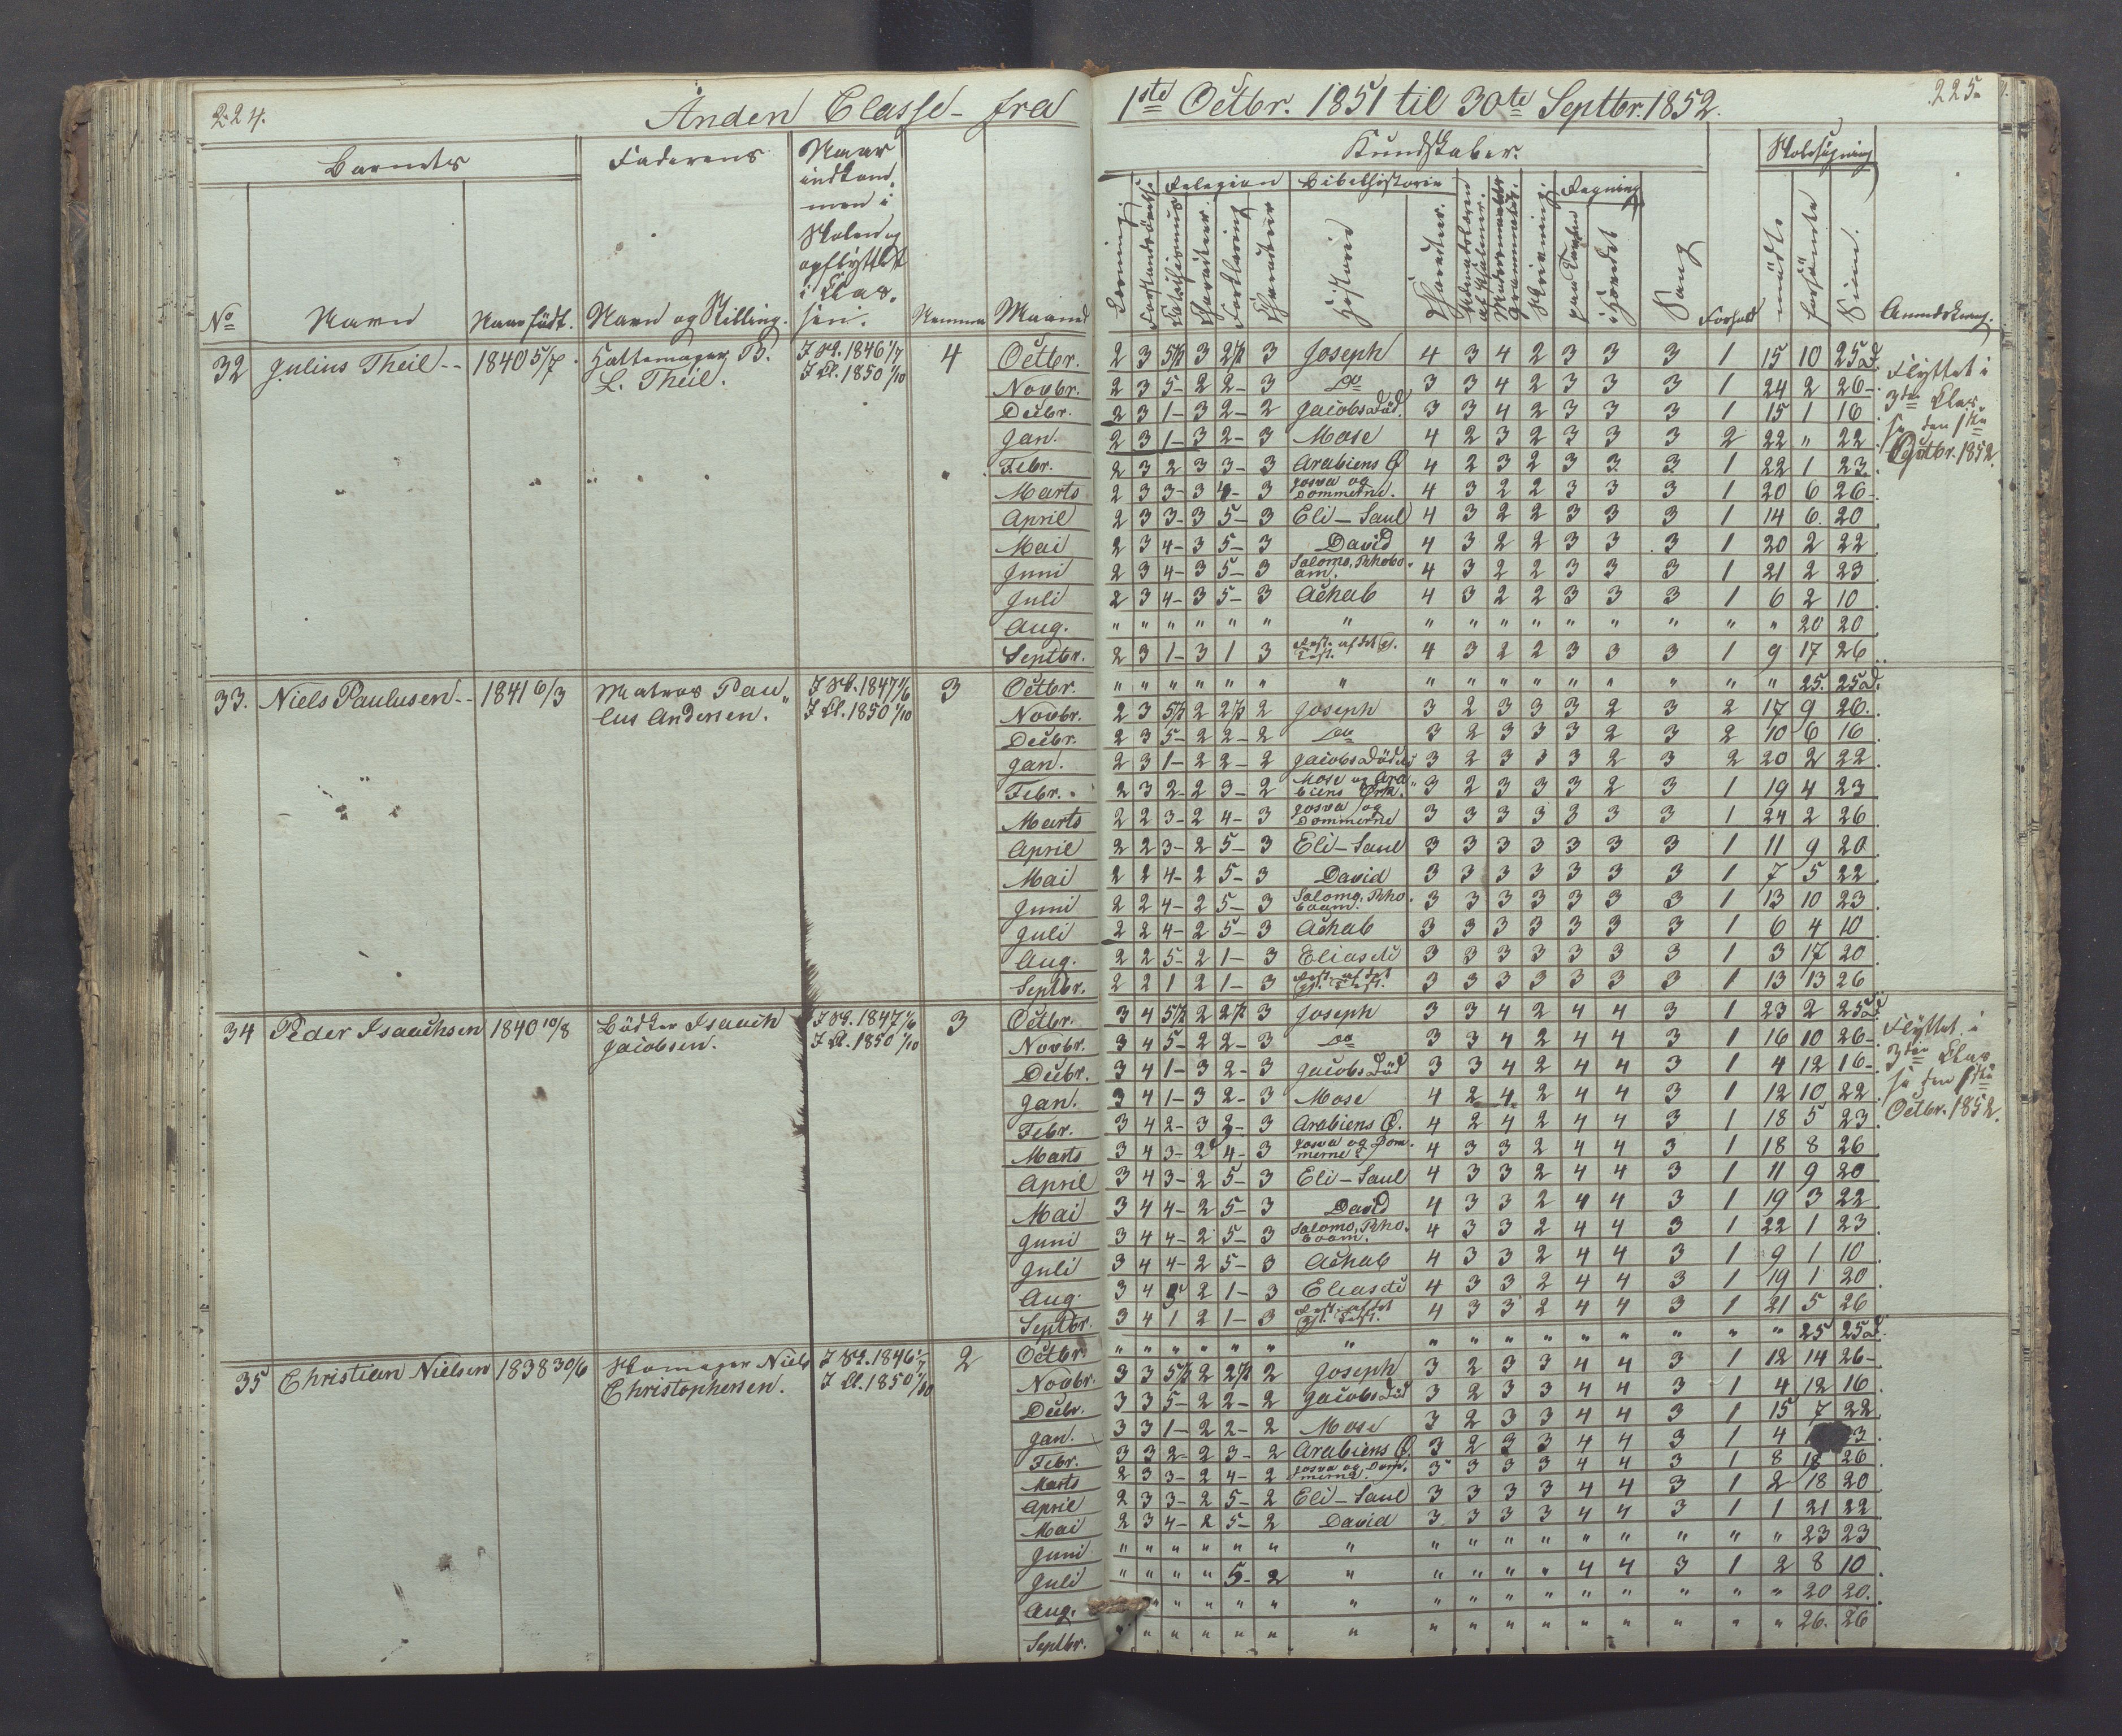 224.
Anden Classe - fra
1ste Octbr. 1851 til 30te Septbr. 1852.
225.
Barnets
Faderens
Naar indkommen i Skolen og opflyttet i Classen.
Kundskaber.
Skolesøgning
Relegion
Bibelhistorie
Regning
No
Navn
Naar født.
Navn og Stilling.
Nemme
Maaned
Historie
Sang
Forhold
mødte
forsømte
Anmærkning.
32 Julius Theil -- 1840 5/7. Hattemager B. I Sk. 1846 1/7 4
L. Theil. I Cl. 1850 1/10
Octbr. 2 3 5½ 3 2½ 3 Joseph 4 3 4 2 3 3 3 1 15 10 25 d.
Novbr. 2 3 5- 2 2- 3 do 3 3 4 2 3 3 3 1 24 2 26-
Decbr. 2 3 1- 3 2- 2 Jacobs Död. 3 3 4 2 3 3 3 1 15 1 16
Jan. 2 3 1- 3 2- 3 Mose 4 2 3 2 3 3 3 2 22 " 22
Febr. 2 3 2 3 3- 3 Arabiens Ø 4 2 3 2 3 3 3 1 22 1 23
Marts 2 3 3- 3 4- 3 Josva og Dommerne. 4 3 2 2 3 3 3 1 20 6 26
April 2 3 3- 3 5- 3 Eli - Saul 4 3 2 2 3 3 3 1 14 6. 20
Mai 2 3 4- 3 5- 3 David 4 3 2 2 3 3 3 1 20 2 22
Juni 2 3 4- 3 5- 3 Salomo, Rhoboam. 4 3 2 2 3 3 3 1 21 2 23
Juli 2 3 4- 3 5- 3 Achab 4 3 2 2 3 3 3 1 6 2 10
Aug. " " " " " " " " " " " " " " " " 20 20
Septbr. 2 3 1- 3 1 3 4 3 2 2 3 3 3 1 9 17 26
Flyttet i
3die Clas-
se den 1ste
Octbr. 1852.
33. Niels Paulusen -- 1841 6/3 Matros Pau- I Sk. 1847 1/6 3
lus Andersen. I Cl. 1850 1/10
Octbr. " " " " " " " " " " " " " " " " 25. 25 d.
Novbr. 2 3 5½ 2 2½ 2 Joseph 3 2 3 3 3 2 3 2 17 9 26.
Decbr. 2 3 5- 2 2- 2 do 3 2 3 3 3 2 3 2 10 6 16
Jan. 2 3 1- 2 2- 2 Jacobs Död 3 2 3 3 3 2 3 2 20 2 22
Febr. 2 3 2- 2 3- 2 Mose og Arabiens Ørk. 3 2 3 3 3 2 3 1 19 4 23
Marts 2 2 3- 2 4- 3 Josva og Dommerne 3 3 3 3 3 3 3 1 24 2 26
April 2 2 3- 2 5- 3 Eli - Saul 3 3 3 3 3 3 3 1 11 9 20
Mai 2 2 4- 2 5- 3 David 3 3 3 3 3 3 3 1 7 5 22
Juni 2 2 4- 2 5- 3 Salomo, Rhoboam. 3 3 3 3 3 3 3 1 13 10 23
Juli 2 2 4- 2 5- 3 Achab 3 3 3 3 3 3 3 1 6 4 10
Aug. 2 2 5- 2 1- 3 Elias 3 3 3 3 3 3 3 1 3 17 20
Septbr. 2 2 1 2 1- 3 3 3 3 3 3 3 3 1 13 13 26
34 Peder Isaachsen 1840 10/8 Bödker Isaach I Sk. 1847 1/6 3
Jacobsen. I Cl. 1850 1/10
Octbr. 3 4 5½ 2 2½ 3 Joseph 3 3 4 2 4 4 3 1 23 2 25 d.
Novbr. 3 4 5- 2 2- 3 do 3 3 4 2 4 4 3 1 16 10 26-
Decbr. 3 4 1- 3 2- 3 Jacobs Död 3 3 4 2 4 4 3 1 4 12 16-
Jan. 3 4 1- 3 2- 3 Mose 4 2 4 2 4 4 3 1 12 10 22
Febr. 3 4 2- 3 3- 3 Arabiens Ø. 4 2 4 2 4 4 3 1 18 5 23
Marts 3 4 3- 2 4- 3 Josva og Dommerne 4 3 3 2 4 4 3 1 18 8 26
April 3 4 3- 2 5- 3 Eli - Saul 4 3 3 2 4 4 3 1 11 9 20
Mai 3 4 4- 2 5- 3 David 4 3 3 2 4 4 3 1 19 3 22
Juni 3 4 4- 2 5- 3 Salomo, Rhoboam. 4 3 3 2 4 4 3 1 22 1 23
Juli 3 4 4- 2 5- 3 Achab 4 3 3 2 4 4 3 1 9 1 10
Aug. 3 4 5 2 1- 3 Elias 4 3 3 2 4 4 3 1 19 1 20
Septbr. 3 4 1 2 1- 3 4 3 3 2 4 4 3 1 21 5 26
Flyttet i
3die Clas-
se den 1ste
Octbr. 1852.
35 Christian Nielsen 1838 30/6 Skomager Niels I Sk. 1846 1/7 2
Christophersen. I Cl. 1850 1/10
Octbr. " " " " " " " " " " " " " " " " 25 25 d.
Novbr. 3 3 5½ 2 2½ 2 Joseph 3 2 3 3 4 4 3 1 12 14 26-
Decbr. 3 3 5- 2 2- 2 Jacobs Död 3 2 3 3 4 4 3 1 4 12 16
Jan. 3 3 1- 2 2- 2 Mose 3 2 3 3 4 4 3 1 15 7 22
Febr. 3 3 2- 2 3- 2 Arabiens Ø. 3 2 3 3 4 4 3 1 4 3
Marts 2 3 3- 2 4- 2 Josva og Dommerne. 3 3 3 3 4 4 3 1 8 18 26
April 2 3 3- 2 5- 2 Eli - Saul 3 3 3 3 4 4 3 1 2 18 20
Mai 2 3 4- 2 5- 2 David 3 3 3 3 4 4 3 1 1 21 22
Juni " " " " " " " " " " " " " " " " 23 23
Juli " " " " 5- 2 " " " " " 4 4 3 1 2 8 10
Aug. " " " " " " " " " " " " " " " 20 20.
Septbr. " " " " " " " " " " " " " " " " 26. 26